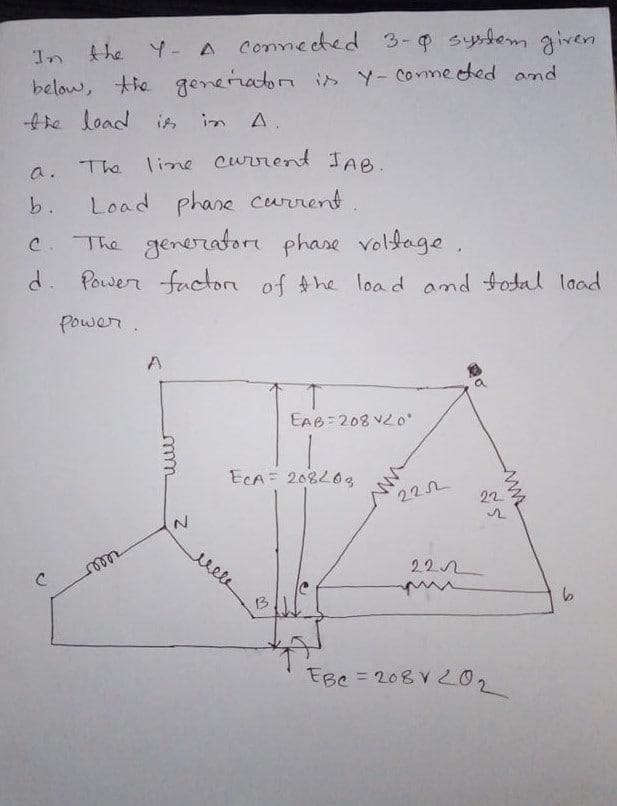 In the Y- Δ connected 3-φ system given
below, the generator is Y-connected and
the load is in Δ.
a. The line current IAB.
b. Load phase current.
c. The generator phase voltage.
d. Power factor of the load and total load
power.
A
a
EAB=208 V∠0°
ECA= 208∠θ3
22Ω
22
Ω
N
22Ω
C
c
B
b
EBC = 208 V ∠θ2